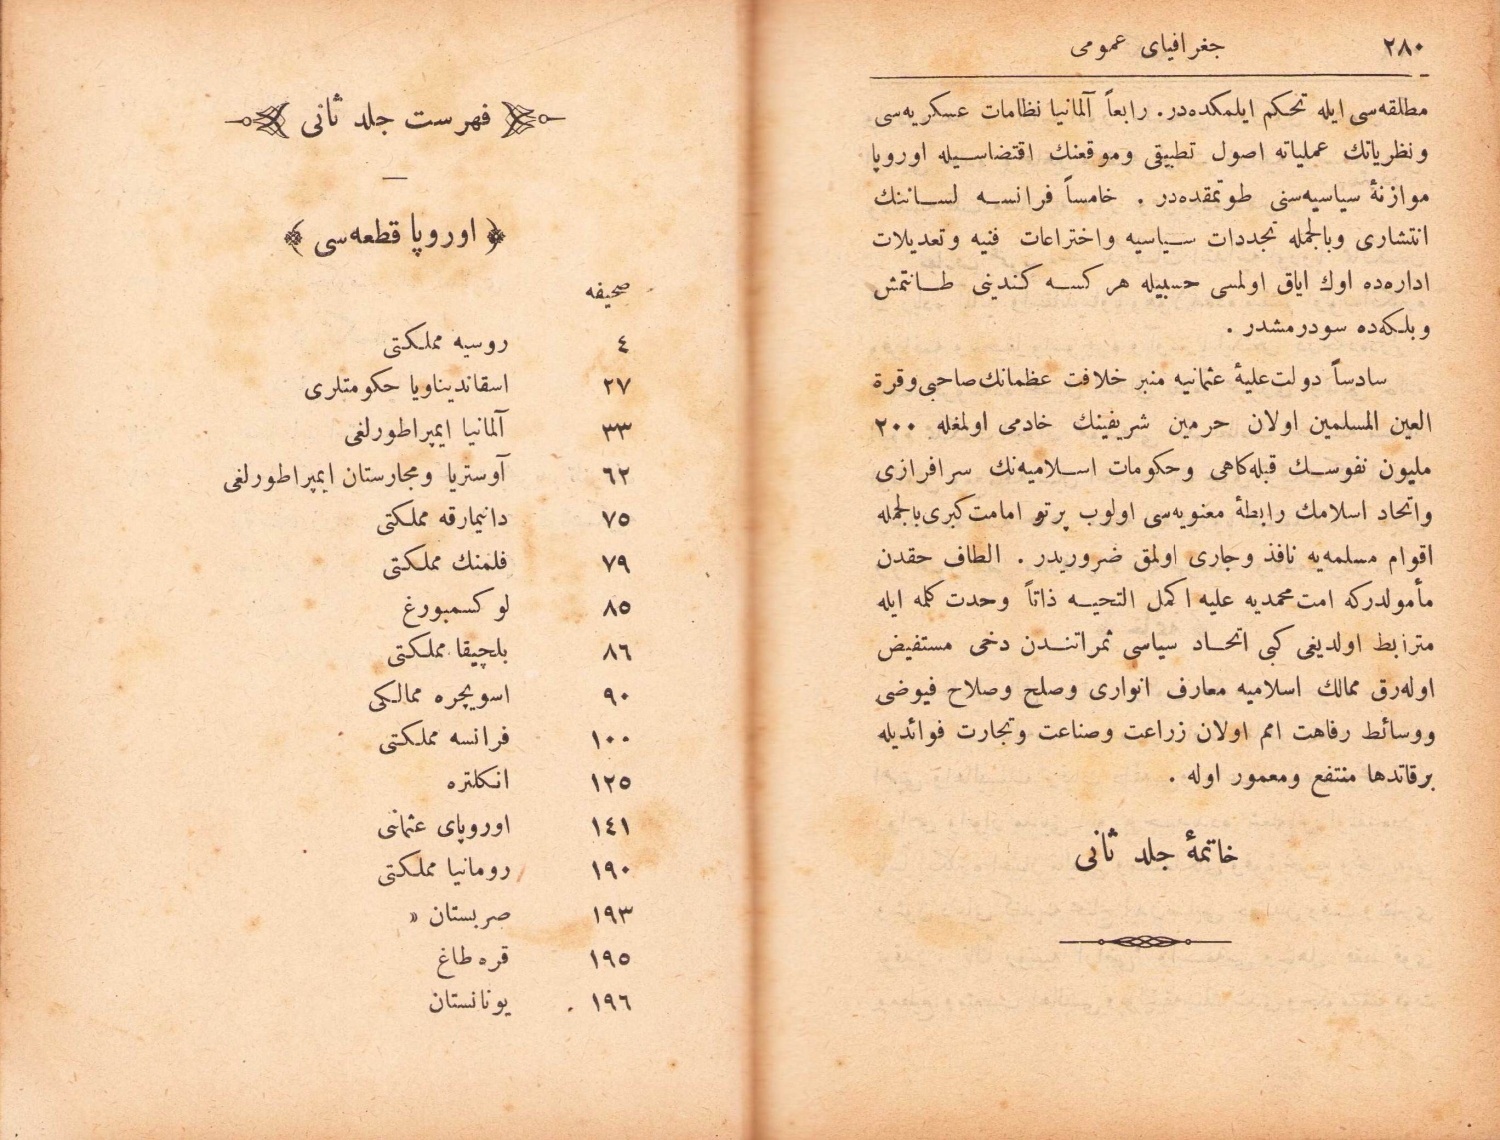 ٢٨٠
جغرافیای عمومی
مطلقه‌سی ایله تحکم ایلمکده‌در. رابعاً آلمانیا نظامات عسکریه‌سی
ونظریاتك عملیاته اصول تطبیقی وموقعنك اقتضاسیله اوروپا
موازنهٔ سیاسیه‌سنی طوتمقده‌در . خامساً فرانسه لساننك
انتشاری وبالجمله تجددات سیاسیه واختراعات فنیه وتعدیلات
اداره‌ده اوك ایاق اولمسی حسبیله هر كسه كندینی طانتمش
وبلكه‌ده سودرمشدر .
سادساً دولت علیهٔ عثمانیه منبر خلافت عظمانك صاحبی وقرة
العین المسلمین اولان حرمین شریفینك خادمی اولمغله ٢٠٠
ملیون نفوسك قبله‌كاهی وحكومات اسلامیه‌نك سرافرازی
واتحاد اسلامك رابطهٔ معنویه‌سی اولوب پرتو امامت كبری بالجمله
اقوام مسلمه‌یه نافذ وجاری اولمق ضروریدر . الطاف حقدن
مأمولدركه امت محمدیه علیه اكمل التحیه ذاتاً وحدت كلمه ایله
مترابط اولدیغی كبی اتحاد سیاسی ثمراتندن دخی مستفیض
اوله‌رق ممالك اسلامیه معارف انواری وصلح وصلاح فیوضی
ووسائط رفاهت امم اولان زراعت وصناعت وتجارت فوائدیله
برقاتدها منتفع ومعمور اوله .
خاتمهٔ جلد ثانی
فهرست جلد ثانی
﴿ اوروپا قطعه‌سی ﴾
صحیفه
٤ روسیه مملكتی
٢٧ اسقاندیناویا حكومتلری
٣٣ آلمانیا ایمپراطورلغی
٦٢ آوستریا ومجارستان ایمپراطورلغی
٧٥ دانیمارقه مملكتی
٧٩ فلمنك مملكتی
٨٥ لوكسمبورغ
٨٦ بلچیقا مملكتی
٩٠ اسویچره ممالكی
١٠٠ فرانسه مملكتی
١٢٥ انكلتره
١٤١ اوروپای عثمانی
١٩٠ رومانیا مملكتی
١٩٣ صربستان »
١٩٥ قره طاغ
١٩٦ یونانستان